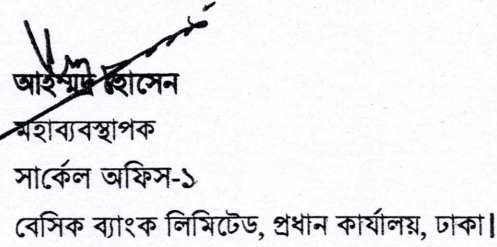 আহম্মদ হোসেন
মহাব্যবস্থাপক
সার্কেল অফিস-১
বেসিক ব্যাংক লিমিটেড, প্রধান কার্যালয়, ঢাকা।